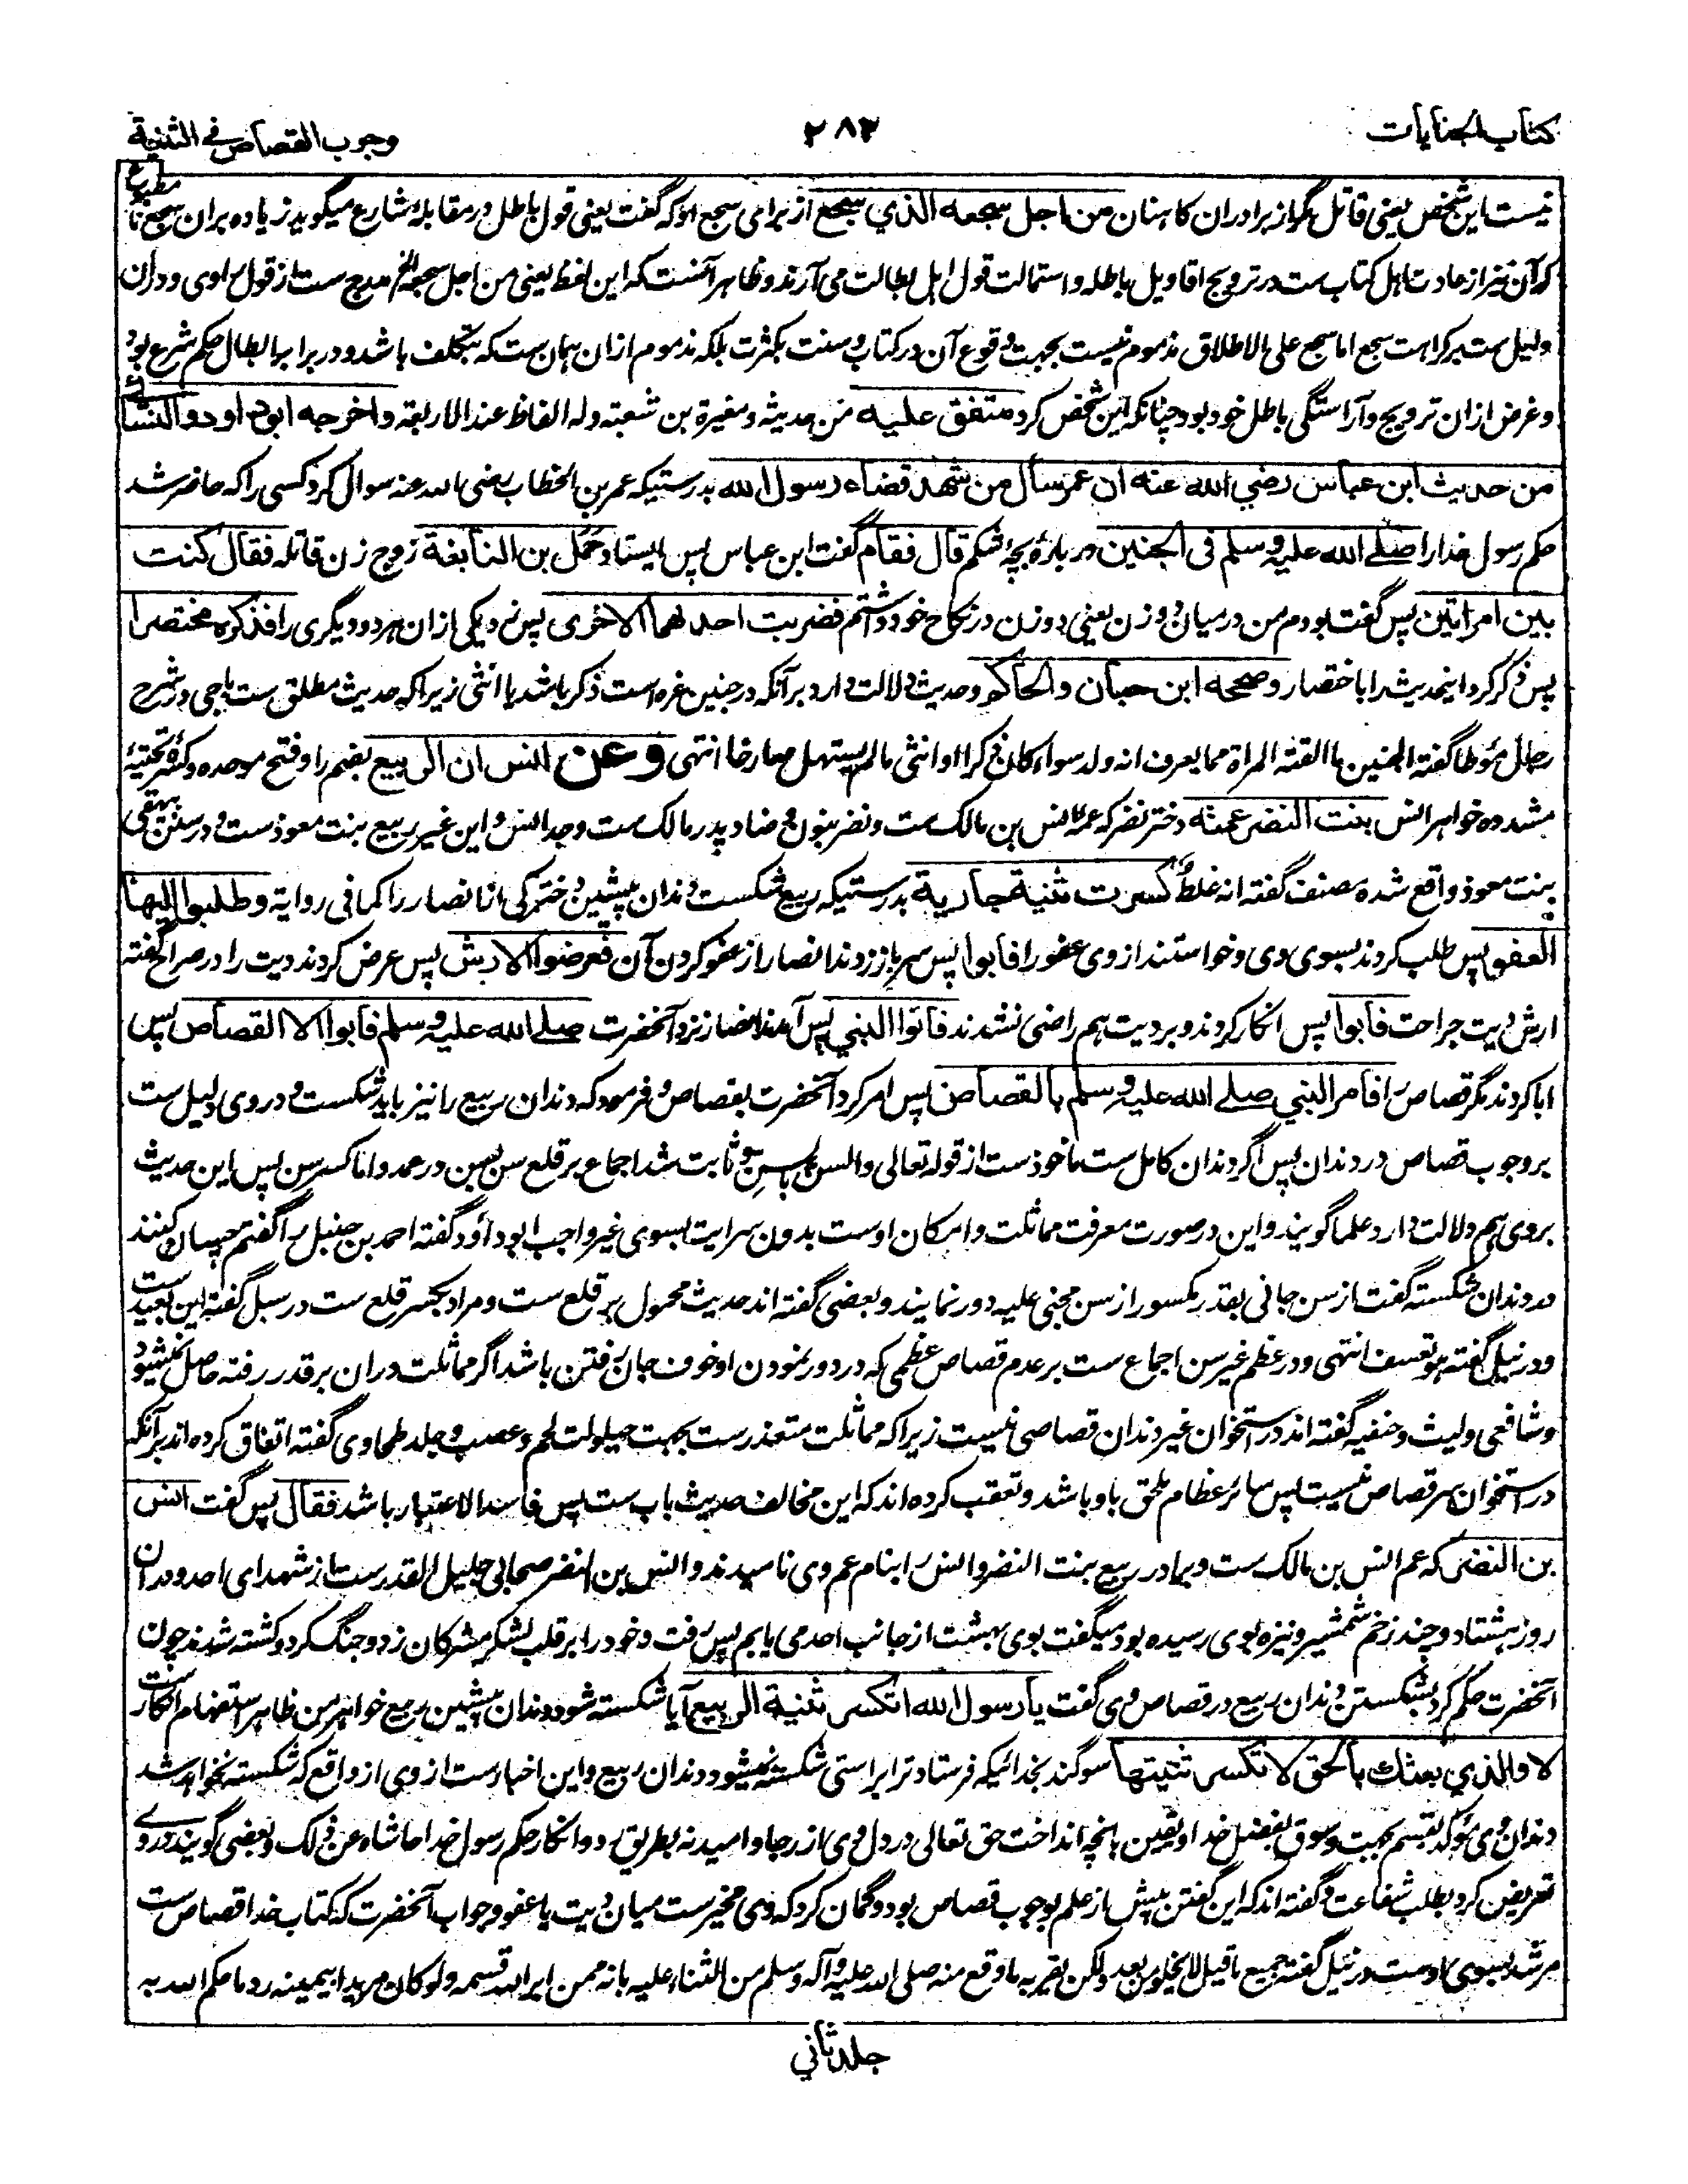 کتاب الجنایات
۲۸۳
وجوب القصاص فی الثنیة
نیست این شخص یعنی قاتل مگر از برادران کاهنان من اجل سجعه الذي سجع از برای سجع او که گفت یعنی قول باطل در مقابلهٔ شارع میگوید زیاده بران سجع
که آن نیز از عادت اهل کتاب ست در ترویج اقاویل باطله و استمالت قول اهل بطالت می آرند و ظاهر آنست که این لفظ یعنی من اجل سجعه الخ مدرج ست از قول راوی و دران
دلیل ست بر کراهت سجع اما سجع علی الاطلاق مذموم نیست بجهت وقوع آن در کتاب و سنت بکثرت بلکه مذموم ازان همان ست که بتکلف باشد و در برابر ابطال حکم شرع بود
و غرض ازان ترویج و آراستگی باطل خود بود چنانکه این شخص کرد متفق علیه من حدیثه و مغیرة بن شعبته وله الفاظ عند الاربعة واخرجه ابو داود والنسائی
من حدیث ابن عباس رضي الله عنه ان عمر سأل من شهد قضاء رسول الله بدرستیکه عمر بن الخطاب رضی الله عنه سوال کرد کسی را که حاضر شد
حکم رسول خدا را صلے الله علیه و سلم فی الجنین در بارهٔ بچهٔ شکم قال فقام گفت ابن عباس پس ایستاد حَمَل بن النابغة زوج زن قاتله فقال کنت
بین امراتین پس گفت بودم من در میان دو زن یعنی دو زن در نکاح خود داشتم فضربت احدهما الاخری پس زد یکی ازان هر دو دیگری را فذکره مختصرا
پس ذکر کرد اینحدیث را باختصار وصححه ابن حبان والحاکم وحدیث دلالت دارد بر آنکه در جنین غره است ذکر باشد یا انثی زیراکه حدیث مطلق ست باجی در شرح
رجال موطا گفته الجنین ما القته المراة مما یعرف انه ولد سواء کان ذکرا او انثی مالم یستهل صارخا انتهی وعن انس ان الربیع بضم را و فتح موحده و کسر تحتیهٔ
مشدده خواهر انس بنت النضر عمته دختر نضر که عمهٔ انس بن مالک ست و نضر بنون و ضاد پدر مالک ست و جد انس و این غیر ربیع بنت معوذ ست و در سنن بیهقی
بنت معوذ واقع شده مصنف گفته انه غلطٌ کسرت ثنیة جاریة بدرستیکه ربیع شکست دندان پیشین دخترکی از انصار را کما فی روایة و طلبوا الیها
العفو پس طلب کردند بسوی وی و خواستند از وی عفو را فابوا پس سر باز زدند انصار از عفو کردن آن فعرضوا الارش پس عرض کردند دیت را در صراح گفته
ارش دیت جراحت فابوا پس انکار کردند و بر دیت هم راضی نشدند فاتوا النبي پس آمدند انصار نزد آنحضرت صلے الله علیه و سلم فابوا الا القصاص پس
ابا کردند مگر قصاص را فامر النبي صلے الله علیه و سلم بالقصاص پس امر کرد آنحضرت بقصاص و فرمود که دندان ربیع را نیز باید شکست و در وی دلیل ست
بر وجوب قصاص در دندان پس اگر دندان کامل ست ماخوذ ست از قوله تعالی والسن بالسن و ثابت شد اجماع بر قلع سن بسن در عمد و اما کسر سن پس این حدیث
بر وی هم دلالت دارد علما گویند و این در صورت معرفت مماثلت و امکان اوست بدون سرایت بسوی غیر واجب ابو داؤد گفته احمد بن حنبل را گفتم چسان کنند
در دندان شکسته گفت از سن جانی بقدر مکسور از سن مجنی علیه دور نمایند و بعضی گفته اند حدیث محمول بر قلع ست و مراد بکسر قلع ست در سبل گفته این بعید ست
و در نیل گفته هو تعسف انتهی و در عظم غیر سن اجماع ست بر عدم قصاص عظمی که در دور نمودن او خوف جان رفتن باشد اگر مماثلت دران بر قدر رفته حاصل نمیشود
و شافعی و لیث و حنفیه گفته اند در استخوان غیر دندان قصاصی نیست زیراکه مماثلت متعذر ست بجهت حیلولت لحم و عصب و جلد طحاوی گفته اتفاق کرده اند بر آنکه
در استخوان سر قصاص نیست پس سائر عظام ملحق باو باشد و تعقب کرده اند که این مخالف حدیث باب ست پس فاسد الاعتبار باشد فقال پس گفت انس
بن النضر که عم انس بن مالک ست و برادر ربیع بنت النضر و انس را بنام عم وی نامیدند و انس بن النضر صحابی جلیل القدر ست از شهدای احد و دران
روز هشتاد و چند زخم شمشیر و نیزه بوی رسیده بود میگفت بوی بهشت از جانب احد می یابم پس رفت و خود را بر قلب لشکر مشرکان زد و جنگ کرد و کشته شد چون
آنحضرت حکم کرد بشکستن دندان ربیع در قصاص وی گفت یا رسول الله اتکسر ثنیة الربیع آیا شکسته شود دندان پیشین ربیع خواهر من ظاهر استفهام انکار ست
لا والذي بعثك بالحق لا تکسر ثنیتها سوگند بخدائیکه فرستاد ترا براستی شکسته نمیشود دندان ربیع و این اخبار ست از وی از واقع که شکسته نخواهد شد
دندان وی مؤکد بقسم بجهت وثوق بفضل خدا و یقین بانچه انداخت حق تعالی در دل وی از رجا و امید نه بطریق رد و انکار حکم رسول خدا حاشاه عن ذلک و بعضی گویند در وے
تعریض کرد بطلب شفاعت و گفته اند که این گفتن پیش از علم بوجوب قصاص بود و گمان کرد که وی مخیر ست میان دیت یا عفو و جواب آنحضرت که کتاب خدا قصاص ست
مرشد بسوی اوست در نیل گفته جمیع ما قیل لا یخلو من بعد ولکن یقربه ما وقع منه صلی الله علیه وآله وسلم من الثناء علیه بانه ممن ابر الله قسمه ولو کان مریدا بیمینه رد ما حکم الله به
جلد ثاني